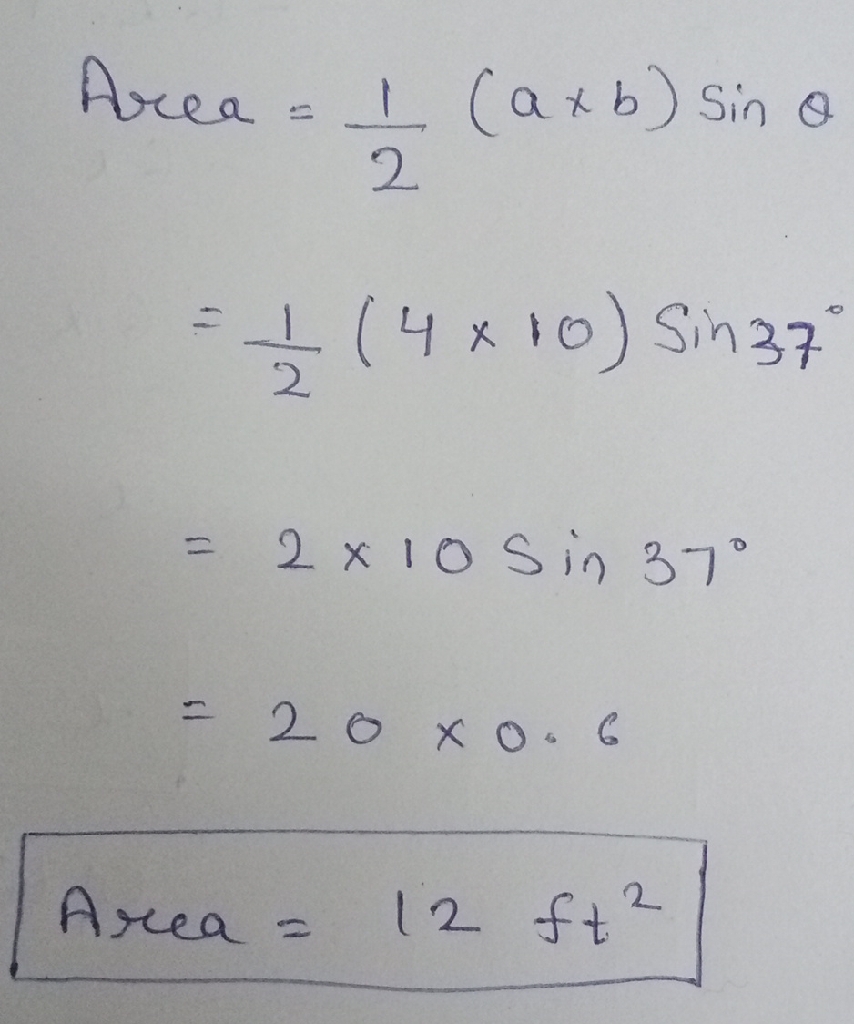 Area = 1/2 (a x b) Sin θ
= 1/2 (4 x 10) Sin 37°
= 2 x 10 Sin 37°
= 20 x 0.6
Area = 12 ft²